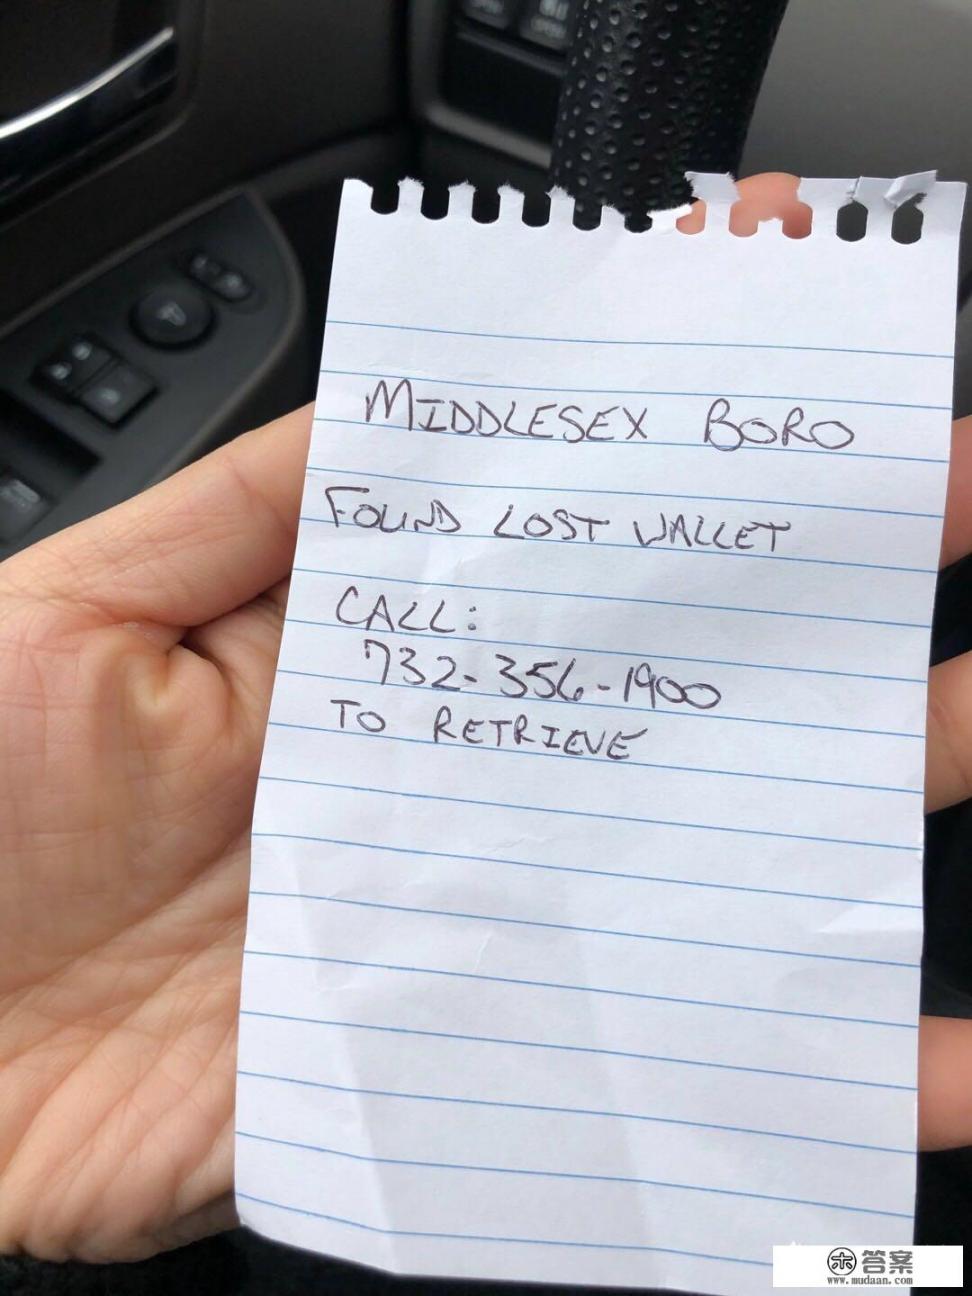 MIDDLESEX BORO
FOUND LOST WALLET
CALL:
732-356-1900
TO RETRIEVE
答案
www.mudaan.com